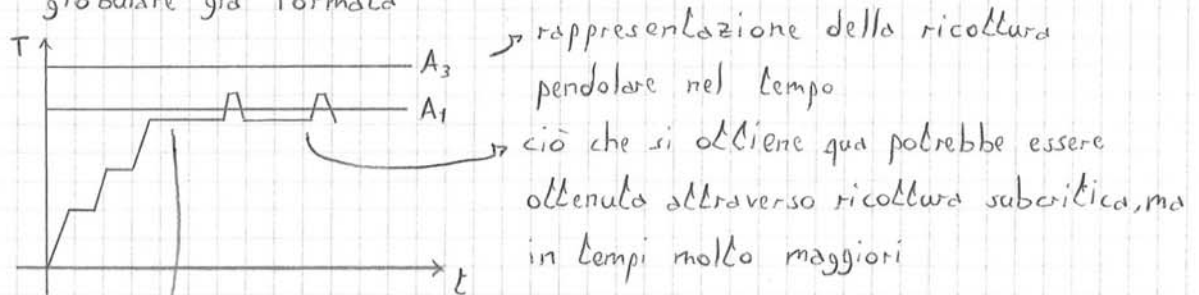 globulare già formata
T
A3
A1
t
rappresentazione della ricottura
pendolare nel tempo
ciò che si ottiene qua potrebbe essere
ottenuto attraverso ricottura subcritica, ma
in tempi molto maggiori